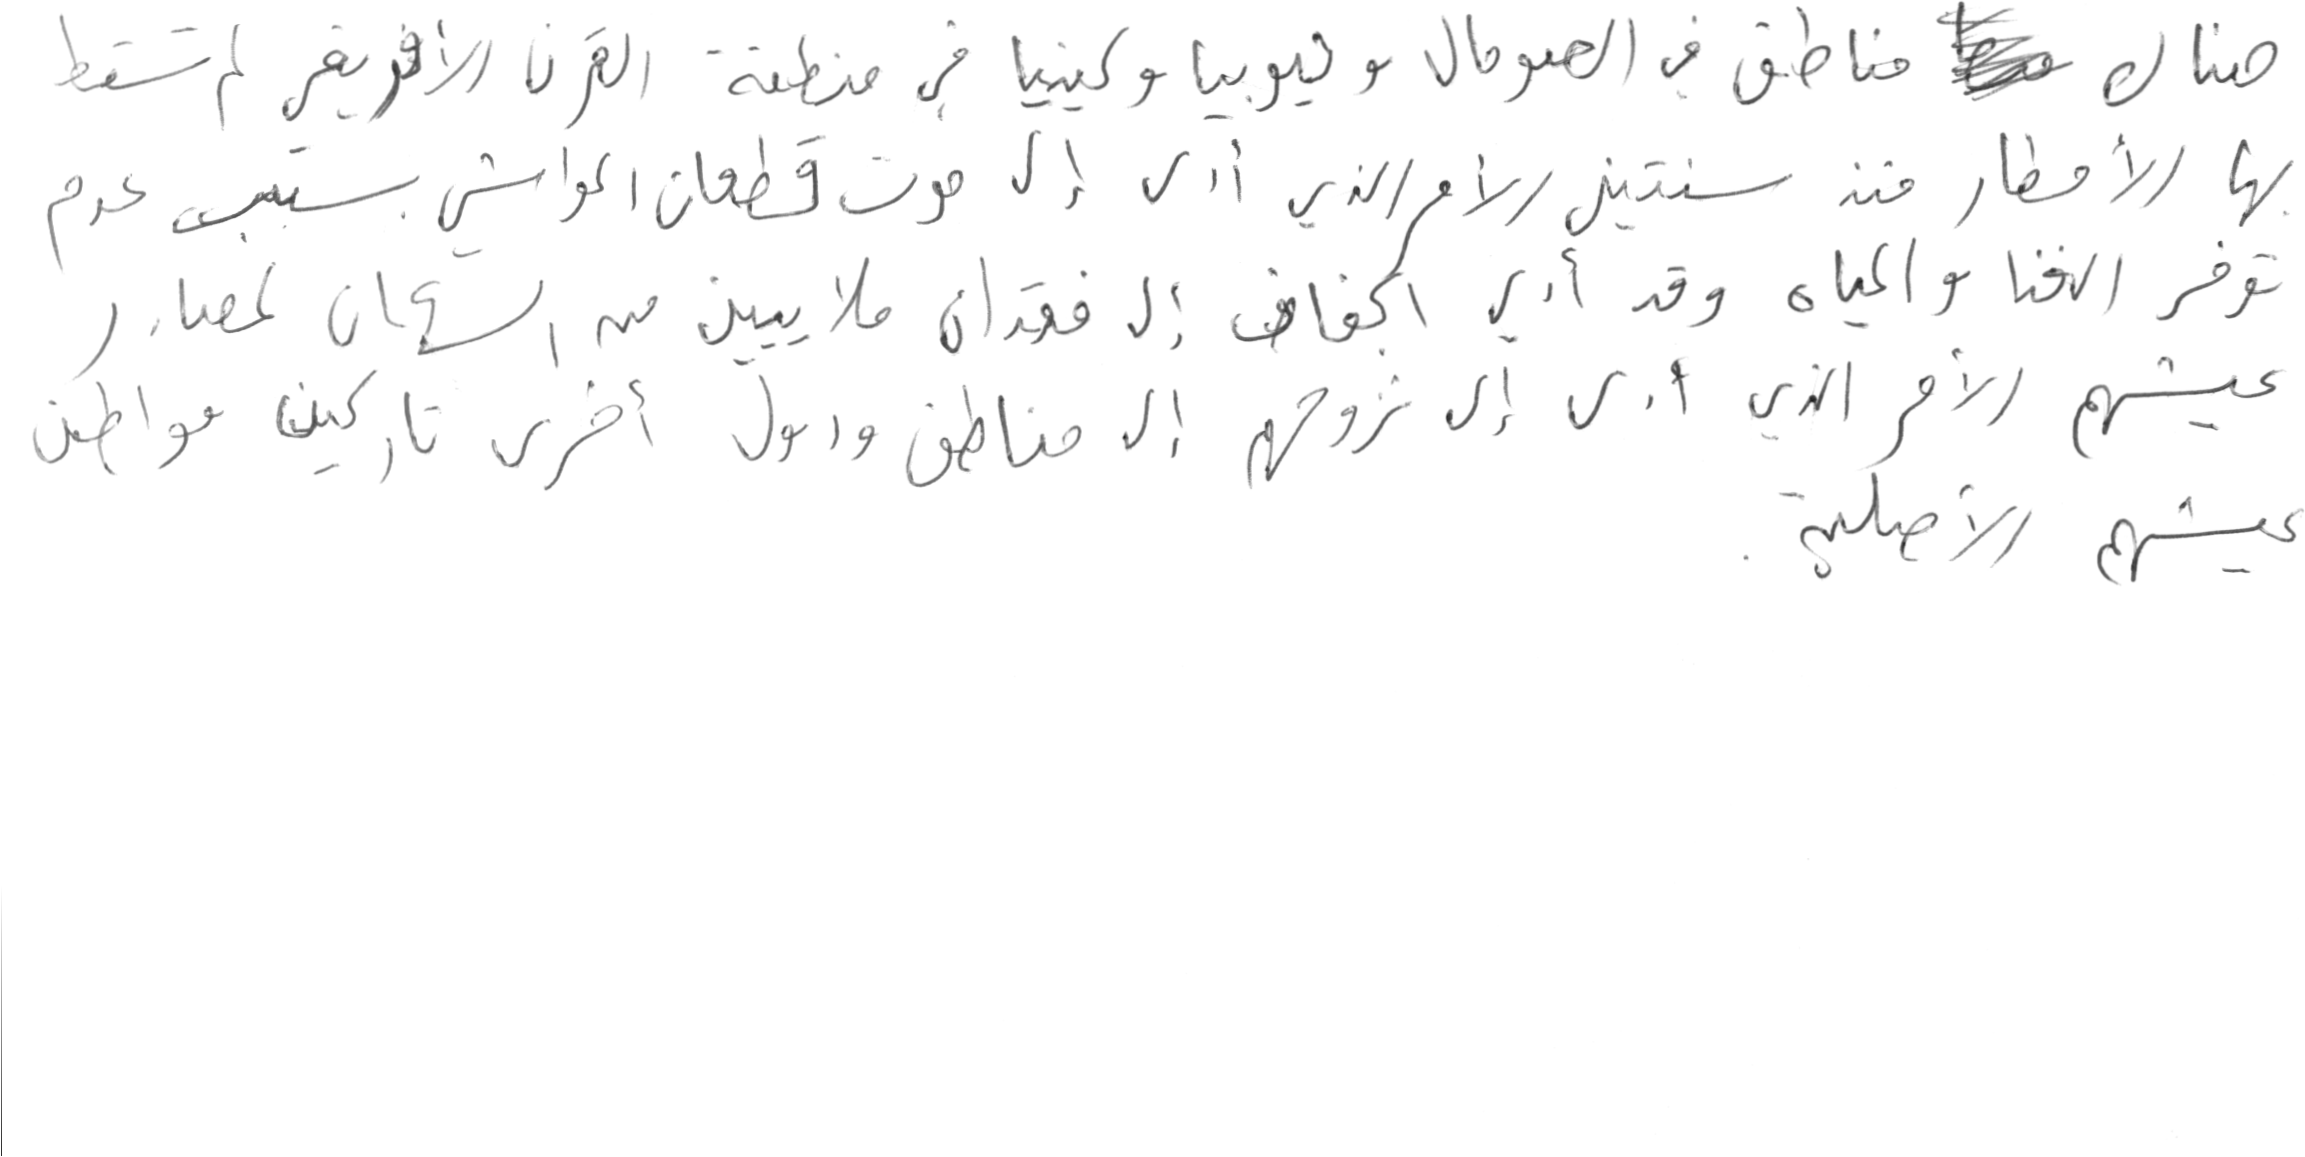 هناك مناطق في الصومال وثيوبيا وكينيا في منطقة القرن الأفريقي لم تسقط
بها الأمطار منذ سنتين الأمر الذي أدى إلى موت قطعان المواشي بسبب عدم
توفر الغذا والمياه وقد أدى الجفاف إلى فقدان ملايين من السكان لمصادر
عيشهم الأمر الذي أدى إلى نزوحهم إلى مناطق ودول أخرى تاركين مواطن
عيشهم الأصلية.